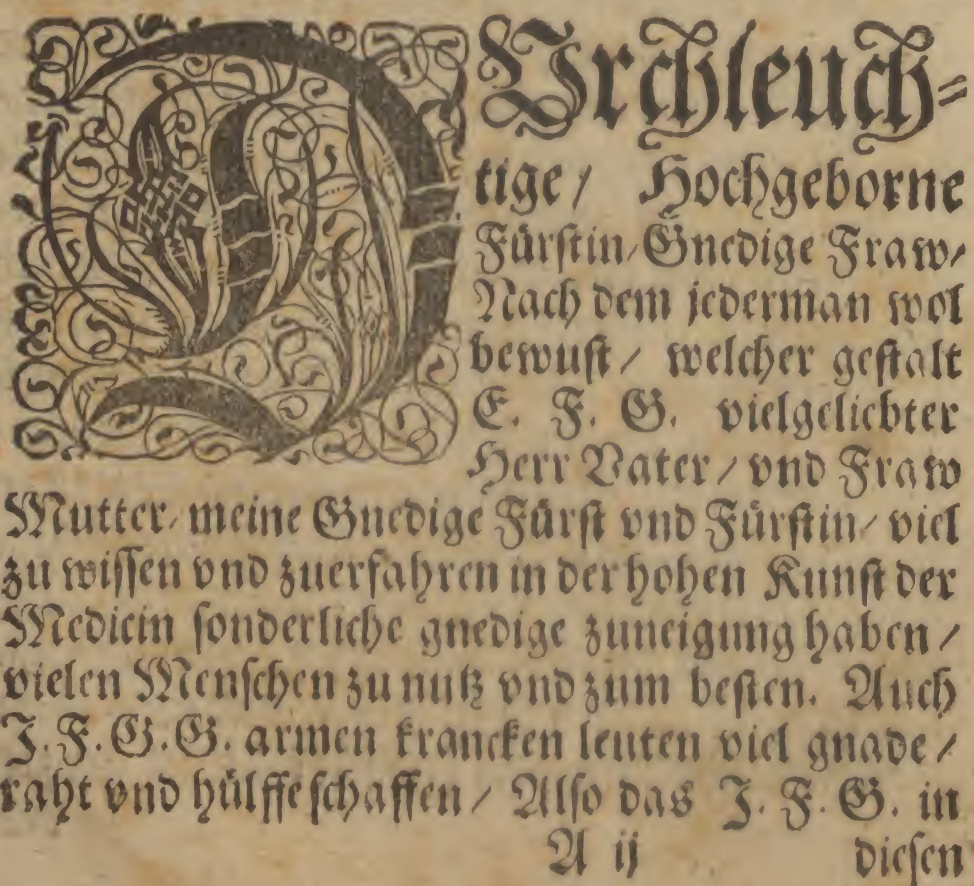 DUrchleuch⸗
tige / Hochgeborne
Fürſtin / Gnedige Fraw /
Nach dem jederman wol
bewuſt / welcher geſtalt
E. F. G. vielgeliebter
Herr Vater / vnd Fraw
Mutter / meine Gnedige Fürſt vnd Fürſtin / viel
zu wiſſen vnd zuerfahren in der hohen Kunſt der
Medicin ſonderliche gnedige zuneigung haben /
vielen Menſchen zu nutz vnd zum beſten. Auch
J. F. G. G. armen krancken leuten viel gnade /
raht vnd hülffe ſchaffen / Alſo das J. F. G. in
A ij dieſen